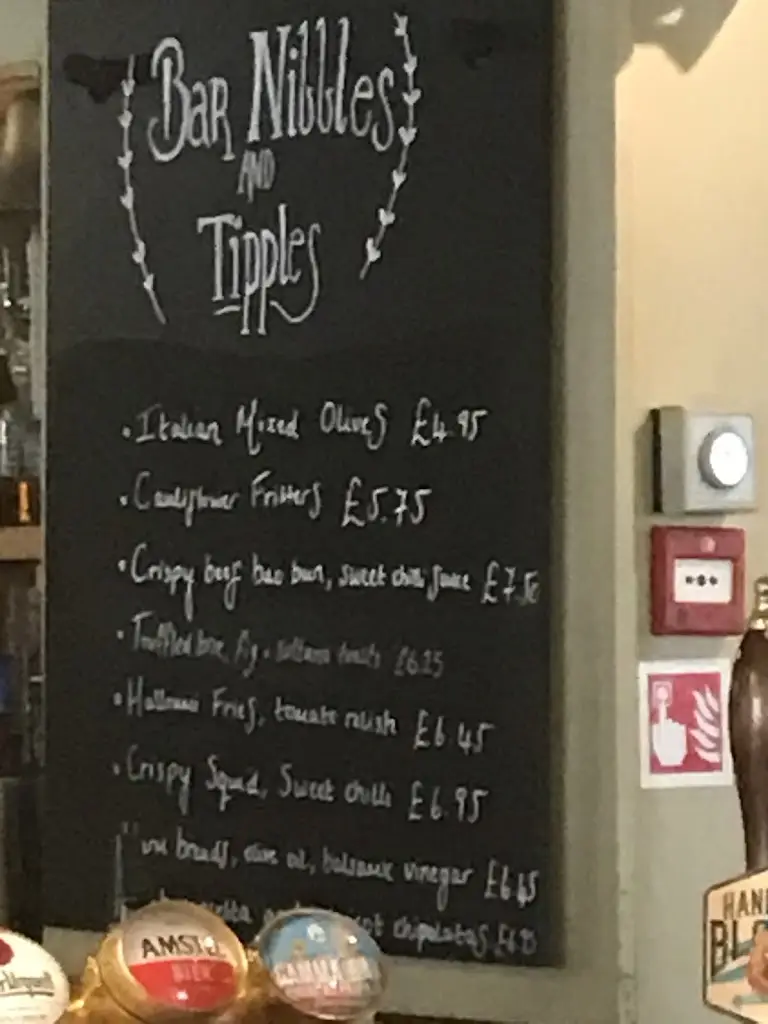 Bar Nibbles
AND
Tipples
• Italian Mixed Olives £4.95
• Cauliflower Fritters £5.75
• Crispy beef bao bun, sweet chilli sauce £7.50
• Truffled brie, fig & sultana £6.25
• Halloumi Fries, tomato relish £6.45
• Crispy Squid, Sweet chilli £6.95
breads, olive oil, balsamic vinegar £6.45
chipolatas
AMSTEL
HAND